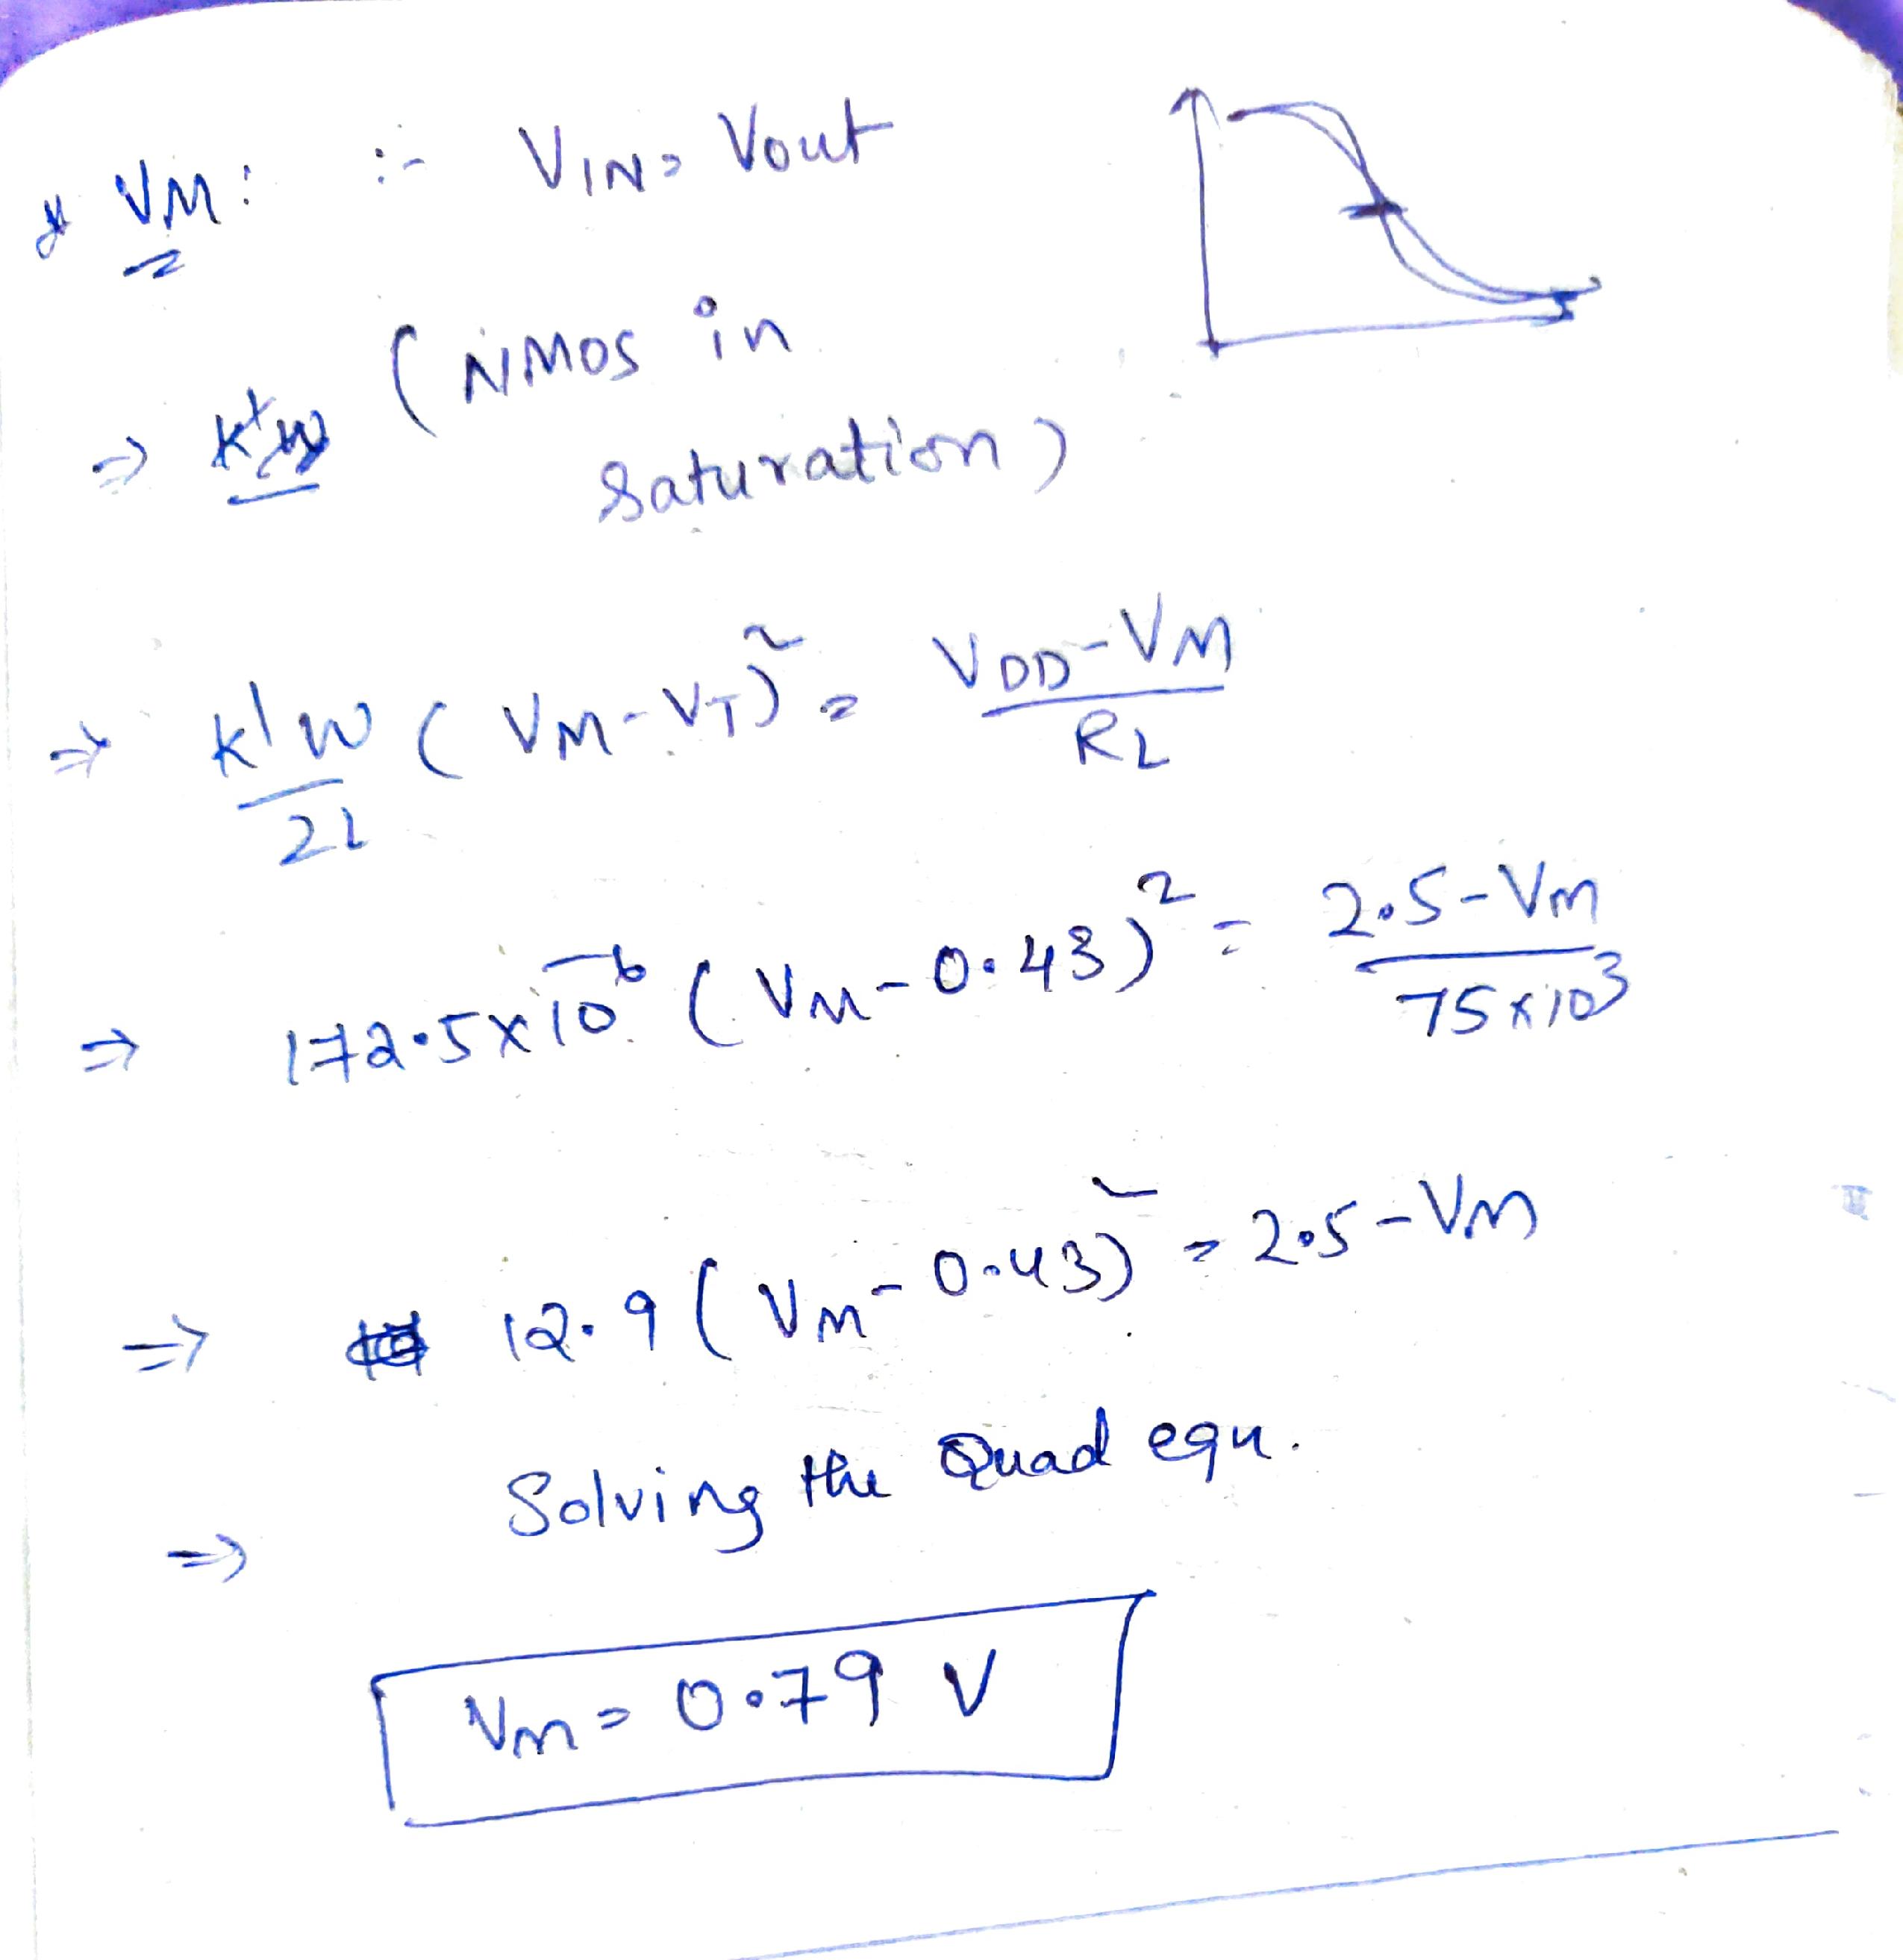 * VM: :- VIN = Vout
(NMOS in
⇒ K'W
saturation)
⇒ k'W/2L (VM-VT)² = VDD-VM/RL
⇒ 172.5x10⁻⁶ (VM-0.43)² = 2.5-VM/75x10³
⇒ 12.9 (VM-0.43)² = 2.5-VM
⇒ Solving the Quad equ.
Vm = 0.79 V